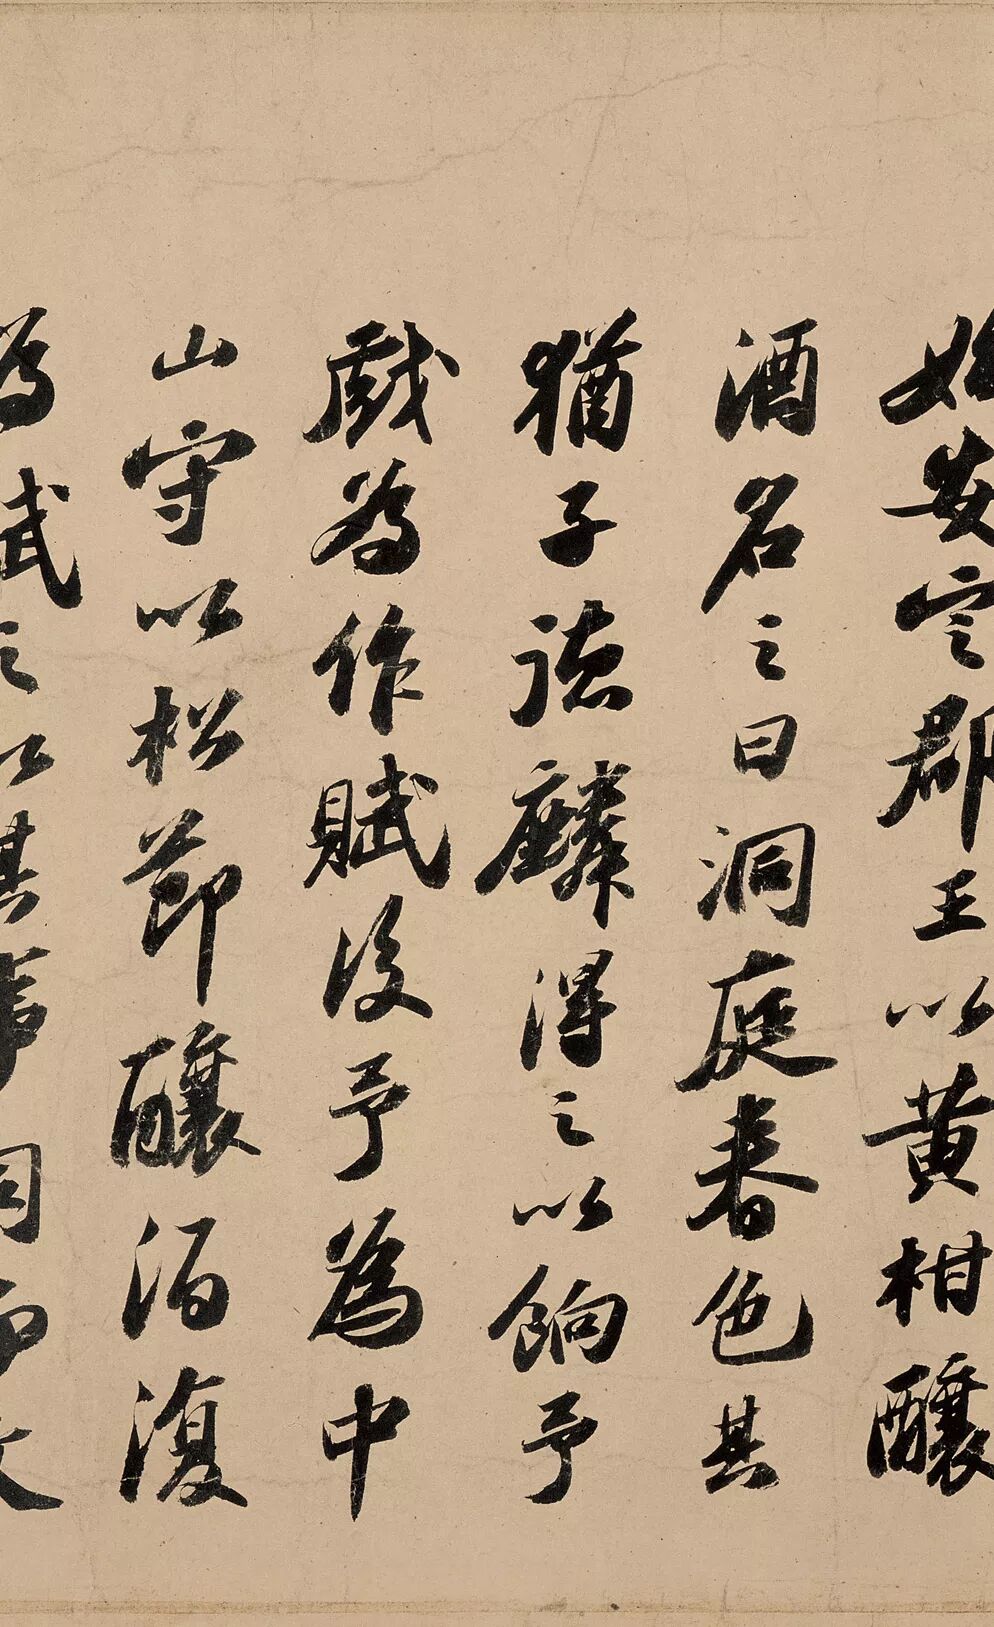 始安定郡王以黄柑釀
酒名之曰洞庭春色其
猶子德麟得之以餉予
戲為作賦後予為中
山守以松節釀酒復
為賦之以其事同而文